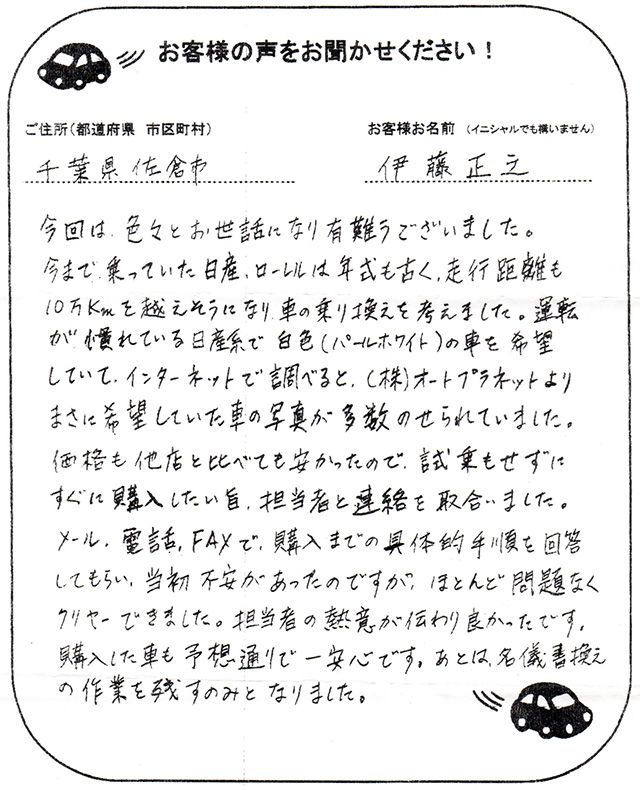 お客様の声をお聞かせください！
ご住所（都道府県　市区町村）
お客様お名前（イニシャルでも構いません）
千葉県佐倉市
伊藤正之
今回は、色々とお世話になり有難うございました。
今まで、乗っていた日産、ローレルは年式も古く、走行距離も
10万Kmを越えそうになり、車の乗り換えを考えました。運転
が慣れている日産系で白色（パールホワイト）の車を希望
していて、インターネットで調べると、（株）オートプラネットより
まさに希望していた車の写真が多数のせられていました。
価格も他店と比べても安かったので、試乗もせずに
すぐに購入したい旨、担当者と連絡を取合いました。
メール、電話、FAXで、購入までの具体的手順を回答
してもらい、当初不安があったのですが、ほとんど問題なく
クリヤーできました。担当者の熱意が伝わり良かったです。
購入した車も予想通りで一安心です。あとは、名儀書換え
の作業を残すのみとなりました。